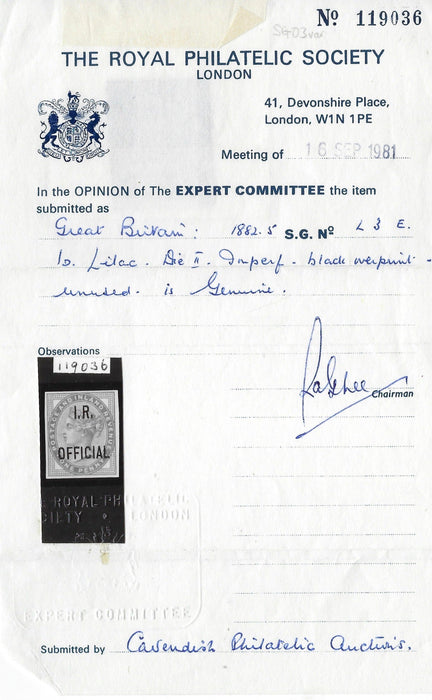 Nº 119036
SG O3var
THE ROYAL PHILATELIC SOCIETY
LONDON
41, Devonshire Place,
London, W1N 1PE
Meeting of 16 SEP 1981
In the OPINION of The EXPERT COMMITTEE the item
submitted as
Great Britain: 1882.5 S.G. Nº L 3 E.
1d. Lilac. Die II. Imperf. black overprint -
unused. is Genuine.
Observations
119036
Chairman
POSTAGE AND INLAND REVENUE
I.R.
OFFICIAL
ONE PENNY
ROYAL PHILATELIC
SOCIETY • LONDON
EXPERT COMMITTEE
Submitted by Cavendish Philatelic Auctions.